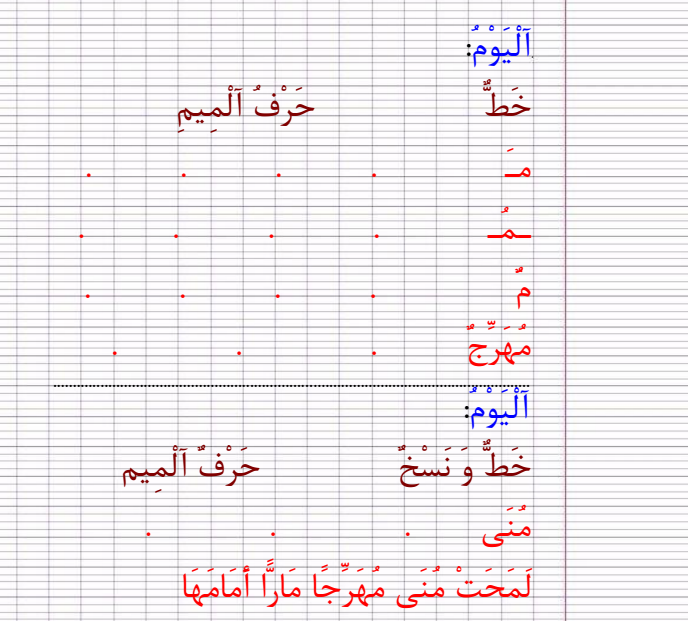 اَلْيَوْمُ:
خَطٌّ حَرْفُ اَلْمِيمِ
مَـ . . . .
ـمُـ . . . .
مٌ . . . .
مُهَرِّجٌ . . .
اَلْيَوْمُ:
خَطٌّ وَ نَسْخٌ حَرْفٌ اَلْمِيم
مُنَى . . .
لَمَحَتْ مُنَى مُهَرِّجًا مَارًّا أَمَامَهَا